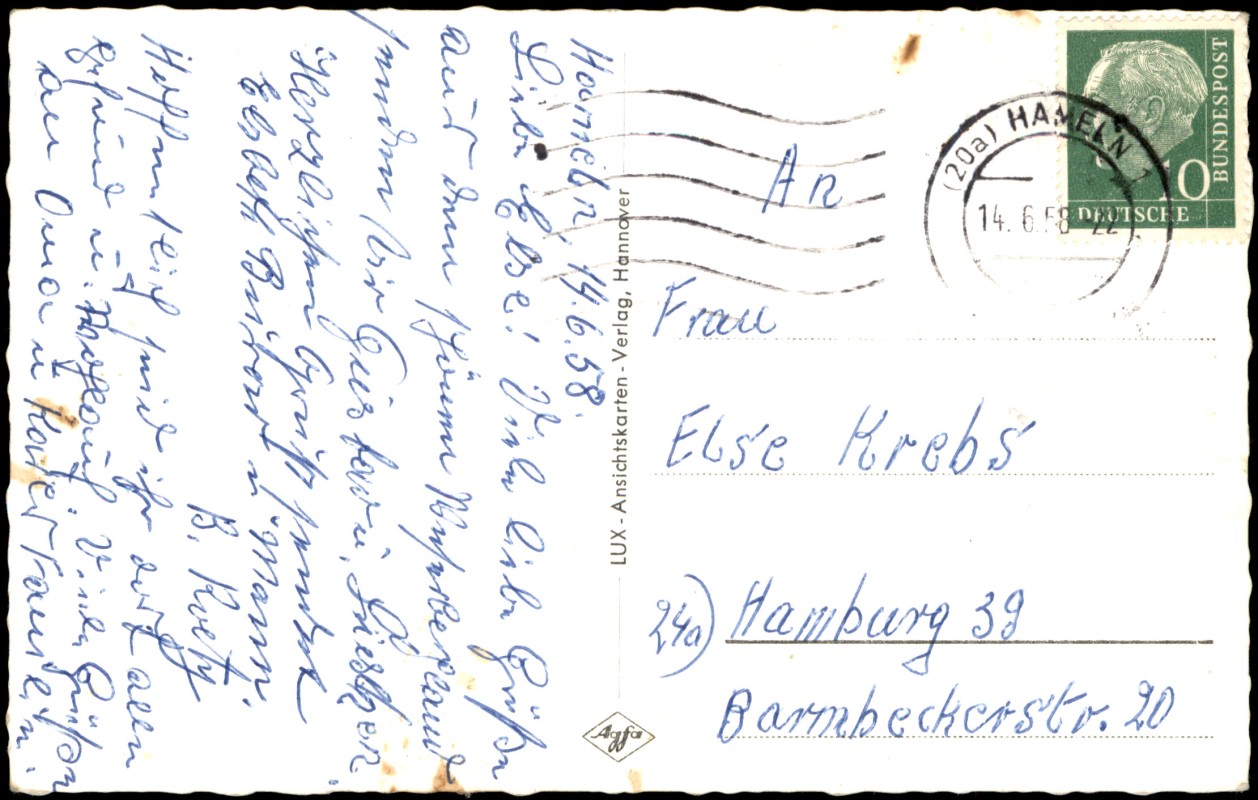 Hameln, 14.6.58.
Liebe Else! Viele liebe Grüße
aus dem schönen Weserbergland
senden Dir Gustav u. 
Herzlichen Gruß sendet
Elsbeth u. Mann.
B.
Hoffentlich seid ihr dort alle
gesund u. Viele Grüße
an Oma u.
LUX - Ansichtskarten - Verlag, Hannover
Agfa
(20a) HAMELN 1
14. 6. 58 - 22
BUNDESPOST
10
DEUTSCHE
An
Frau
Else Krebs
24a) Hamburg 39
Barmbeckerstr. 20